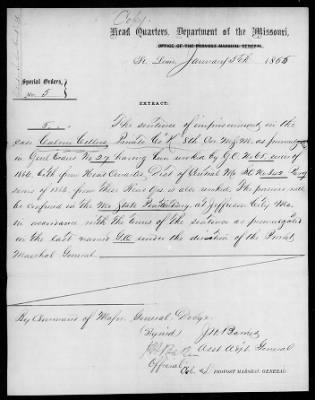 Copy.
Head Quarters, Department of the Missouri,
OFFICE OF THE PROVOST MARSHAL GENERAL,
St. Louis, January 5th 1865
Special Orders,
No. 5
EXTRACT.
The sentence of imprisonment, in the
case Private Co "K" 8th Cav. M.S.M. as promulgated
in Genl Orders No 27 having been revoked by G.O. No 65, series of
1864, both from Head Quarters, Dist of Central Mo
series of 1864 from these Head Qrs. is also revoked. The prisoner will
be confined in the Mo State Penitentiary, at Jefferson City Mo.
in accordance with the terms of the sentence as promulgated
in the last named under the direction of the Provost
Marshal General.
By Command of Major General Dodge.
Signed J W Barnes
Asst Adjt. General
Official
PROVOST MARSHAL GENERAL.